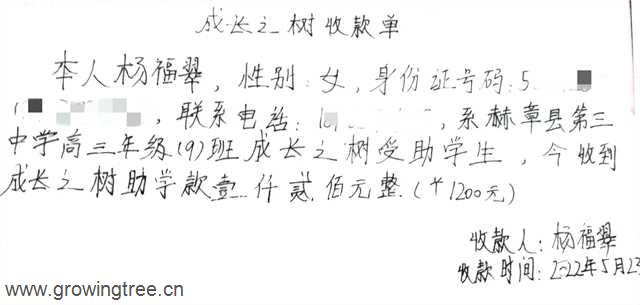 成长之树收款单
本人杨福翠，性别：女，身份证号码：5
，联系电话：1，系赫章县第三
中学高三年级(9)班成长之树受助学生，今收到
成长之树助学款壹仟贰佰元整.(￥1200元)
收款人：杨福翠
收款时间：2022年5月23
www.growingtree.cn